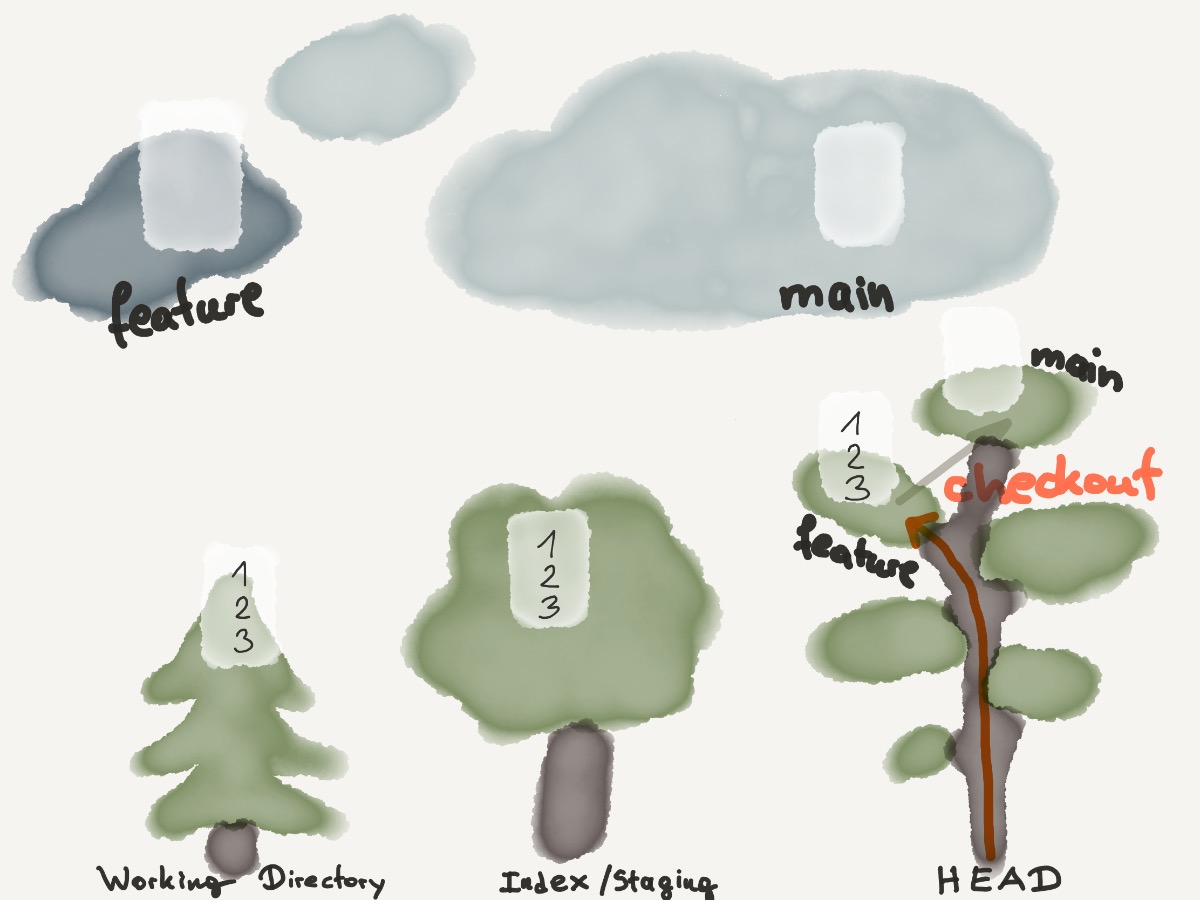 feature
main
main
1
2
3
checkout
feature
1
2
3
1
2
3
Working Directory
Index/Staging
HEAD